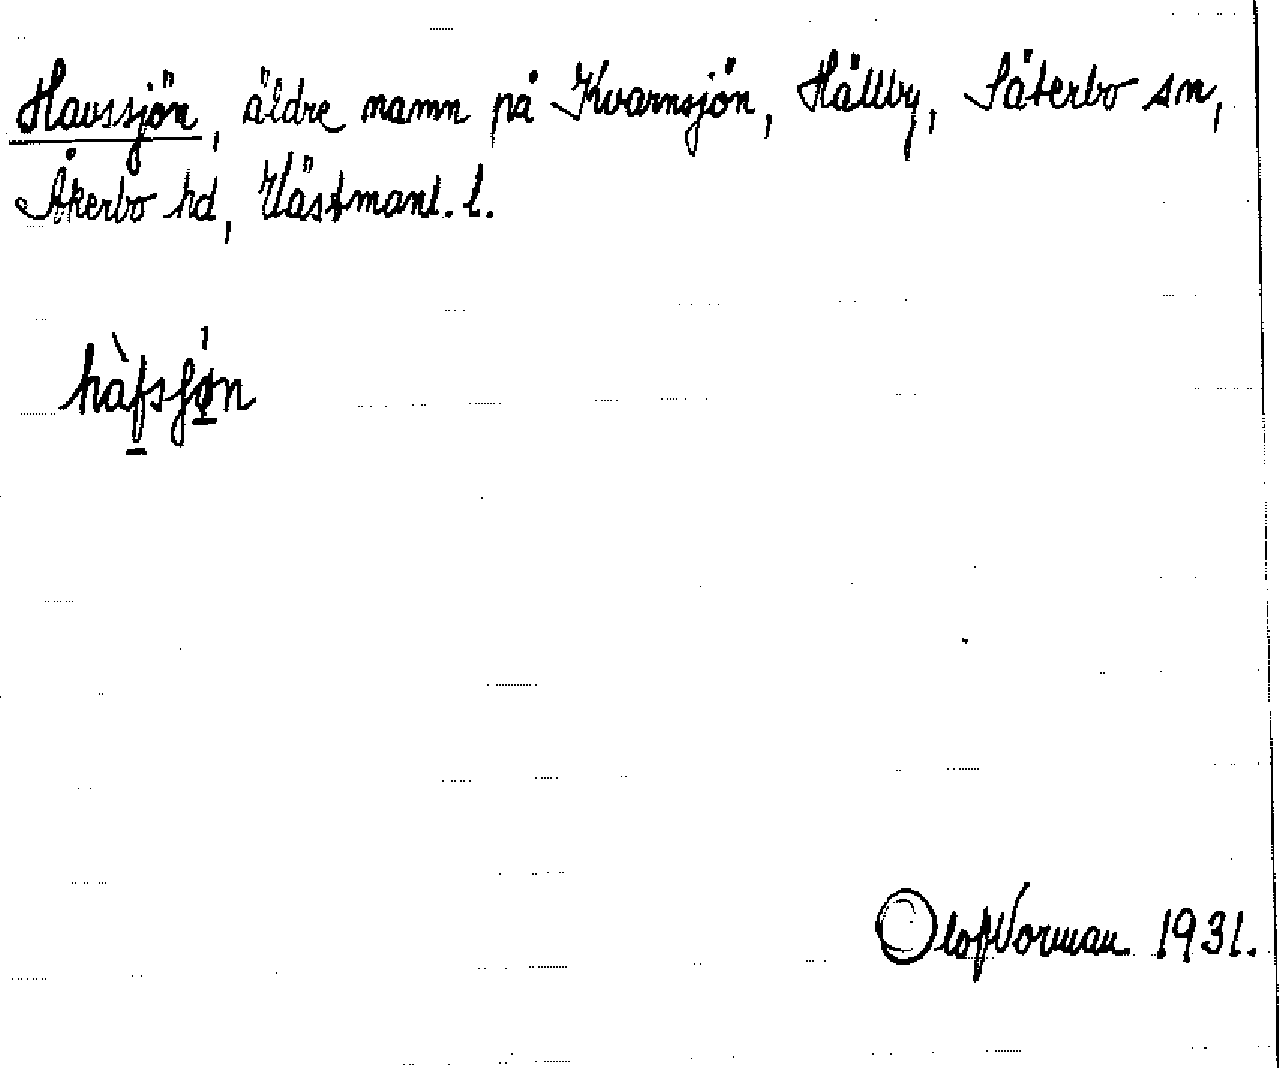 Havssjön, äldre namn på Kvarnsjön, Hällby, Säterbo sn,
Åkerbo hd, Västmanl. l.
hàfsjø̀n
Olof Norman 1931.